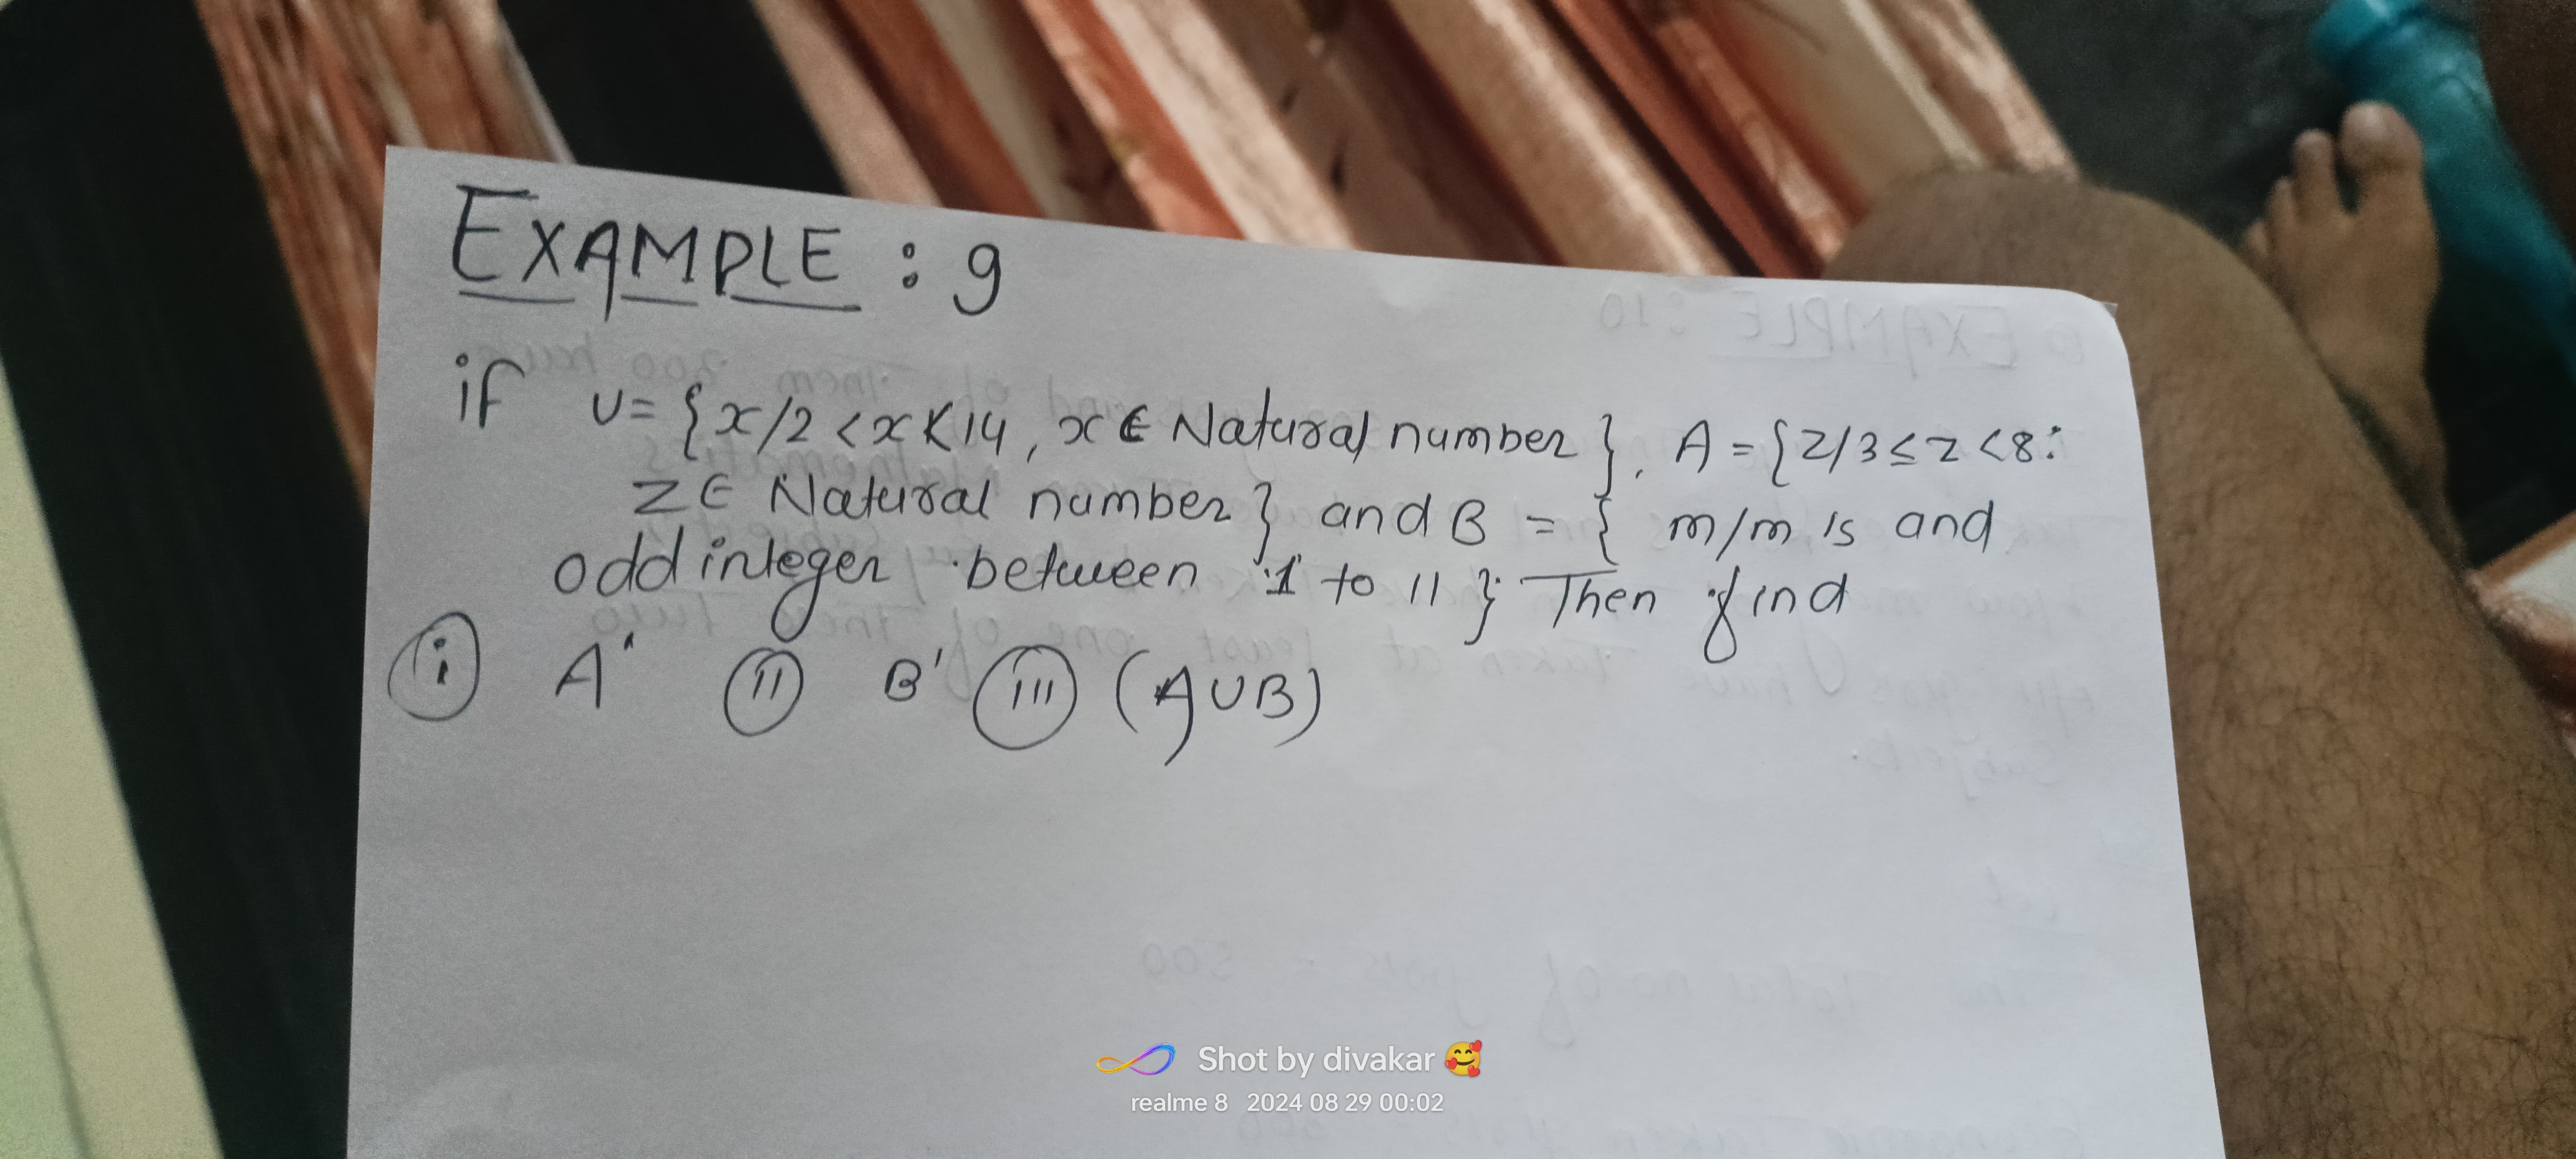 EXAMPLE : 9
if U = {x/2 < x < 14, x ∈ Natural number}. A = {z/3 ≤ z < 8:
z ∈ Natural number} and B = { m/m is and
odd integer between 1 to 11 } Then find
(i) A' (ii) B' (iii) (A∪B)
Shot by divakar 🥰
realme 8 2024 08 29 00:02